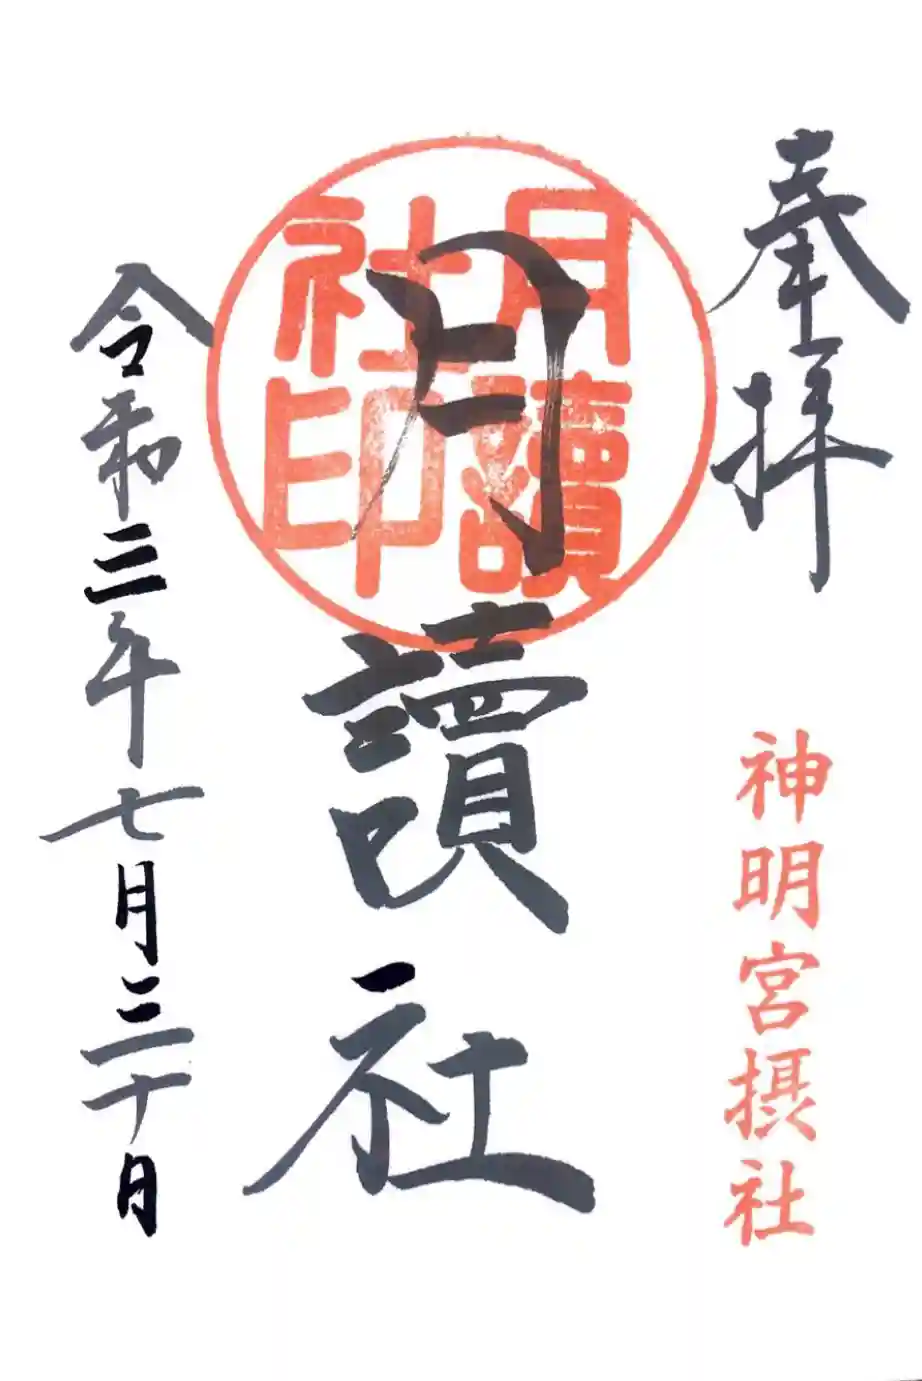 奉拝
神明宮摂社
月讀社
月讀社印
令和三年七月三十日